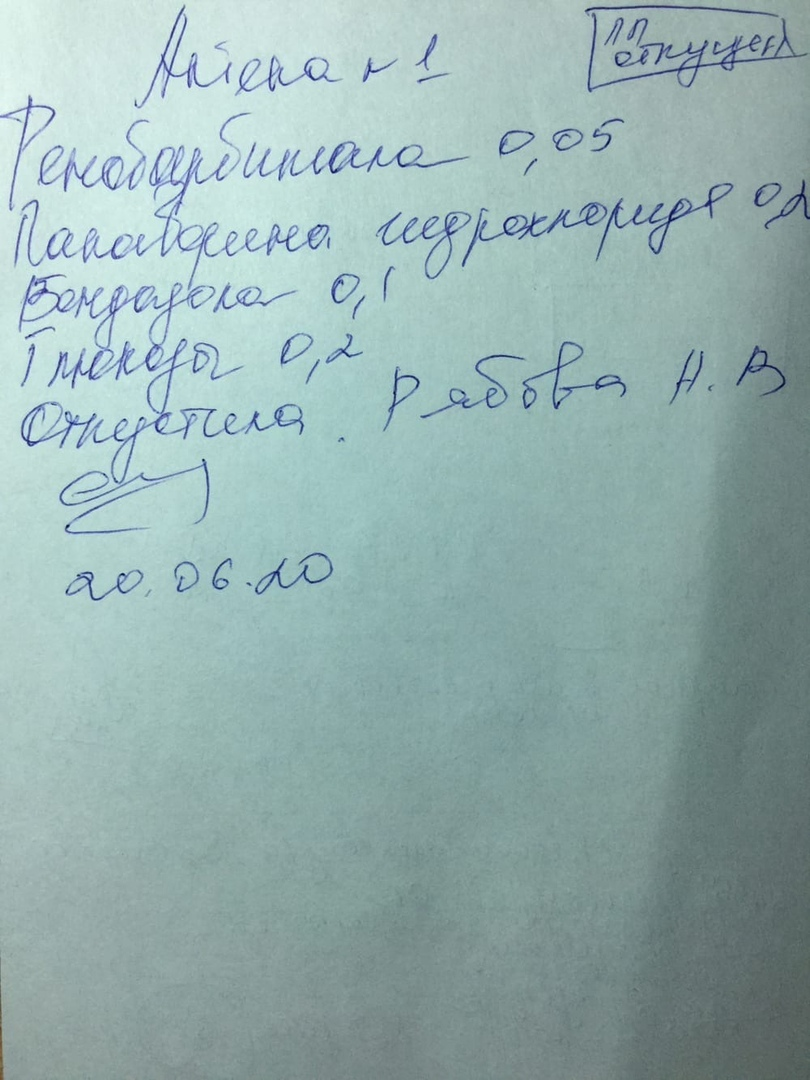 Аптека № 1
ЛП
отпущен
Фенобарбитала 0,05
Папаверина гидрохлорида 0,2
Бендазола 0,1
Глюкозы 0,2
Отпустила. Рябова Н. В
20.06.20